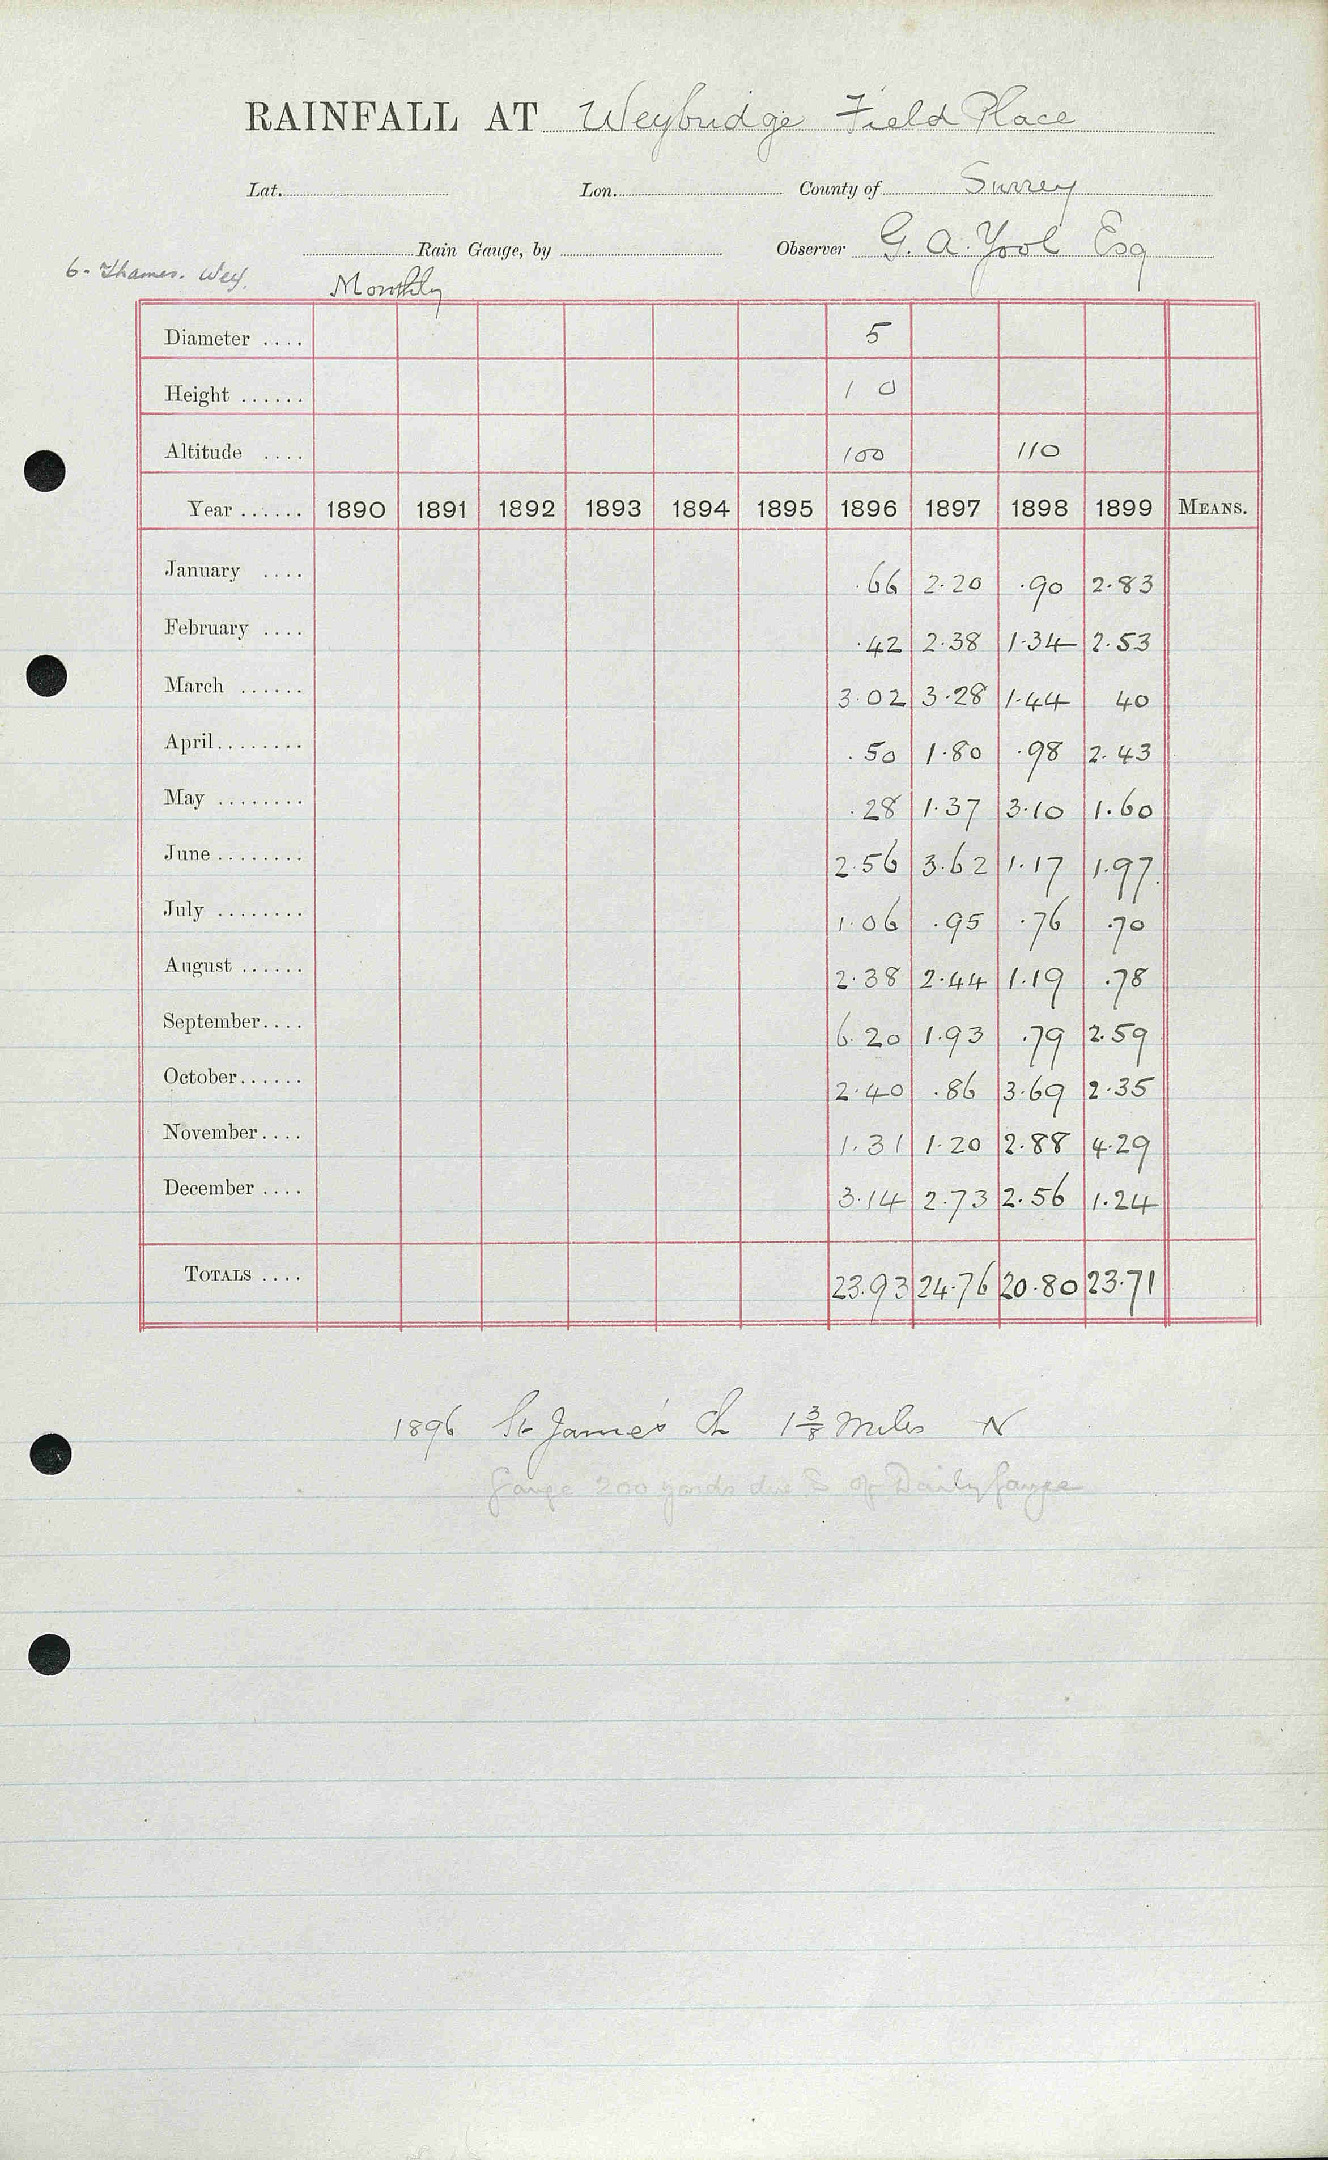 RAINFALL AT Weybridge Field Place
Lat. Lon. County of Surrey
Rain Gauge, by Observer G. A. Yool Esq
6. Thames. Wey. Monthly
Diameter .... 5
Height ...... 1 0
Altitude .... 100 110
Year ...... 1890 1891 1892 1893 1894 1895 1896 1897 1898 1899 MEANS.
January .... .66 2.20 .90 2.83
February .... .42 2.38 1.34 2.53
March ...... 3.02 3.28 1.44 40
April........ .50 1.80 .98 2.43
May ........ .28 1.37 3.10 1.60
June ........ 2.56 3.62 1.17 1.97
July ........ 1.06 .95 .76 .70
August ...... 2.38 2.44 1.19 .78
September.... 6.20 1.93 .79 2.59
October...... 2.40 .86 3.69 2.35
November.... 1.31 1.20 2.88 4.29
December .... 3.14 2.73 2.56 1.24
TOTALS .... 23.93 24.76 20.80 23.71
1896 St James's Ch 1 3/8 Miles N
Gauge 200 yards due S of Daily Gauge